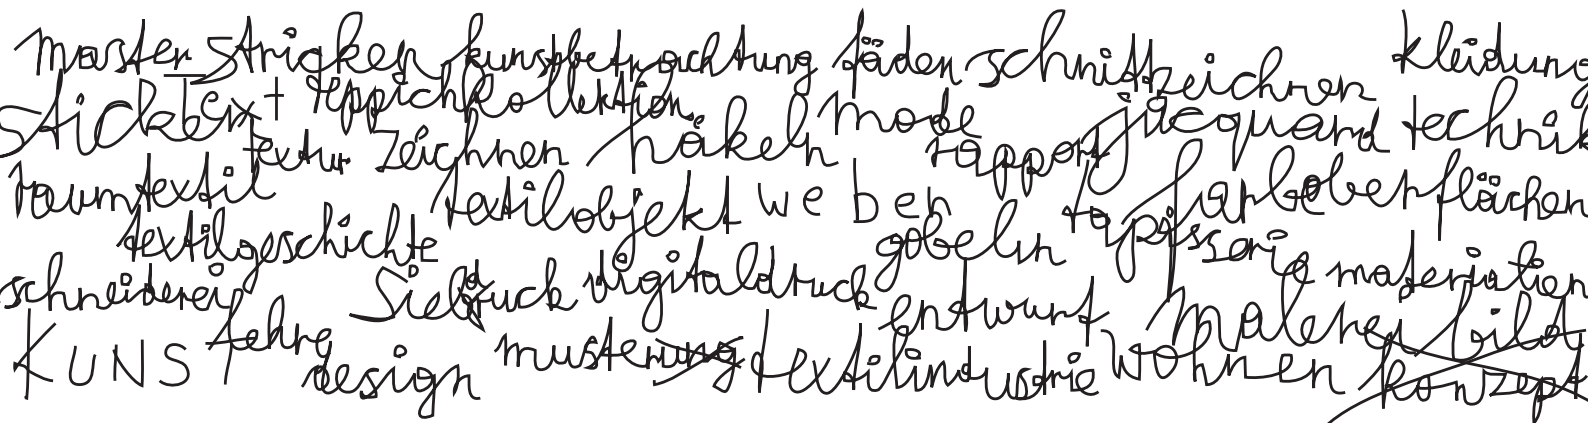 muster stricken kunstbetrachtung fäden schnittzeichnen kleidung
sticktext teppich kollektion mode jacquard technik
textur zeichnen häkeln rapport
raumtextil textilobjekt weben farboberflächen
textilgeschichte gobelin tapisserie materialien
schneiderei siebdruck digitaldruck entwurf malerei bild
KUNST lehre design musterung textilindustrie wohnen konzept